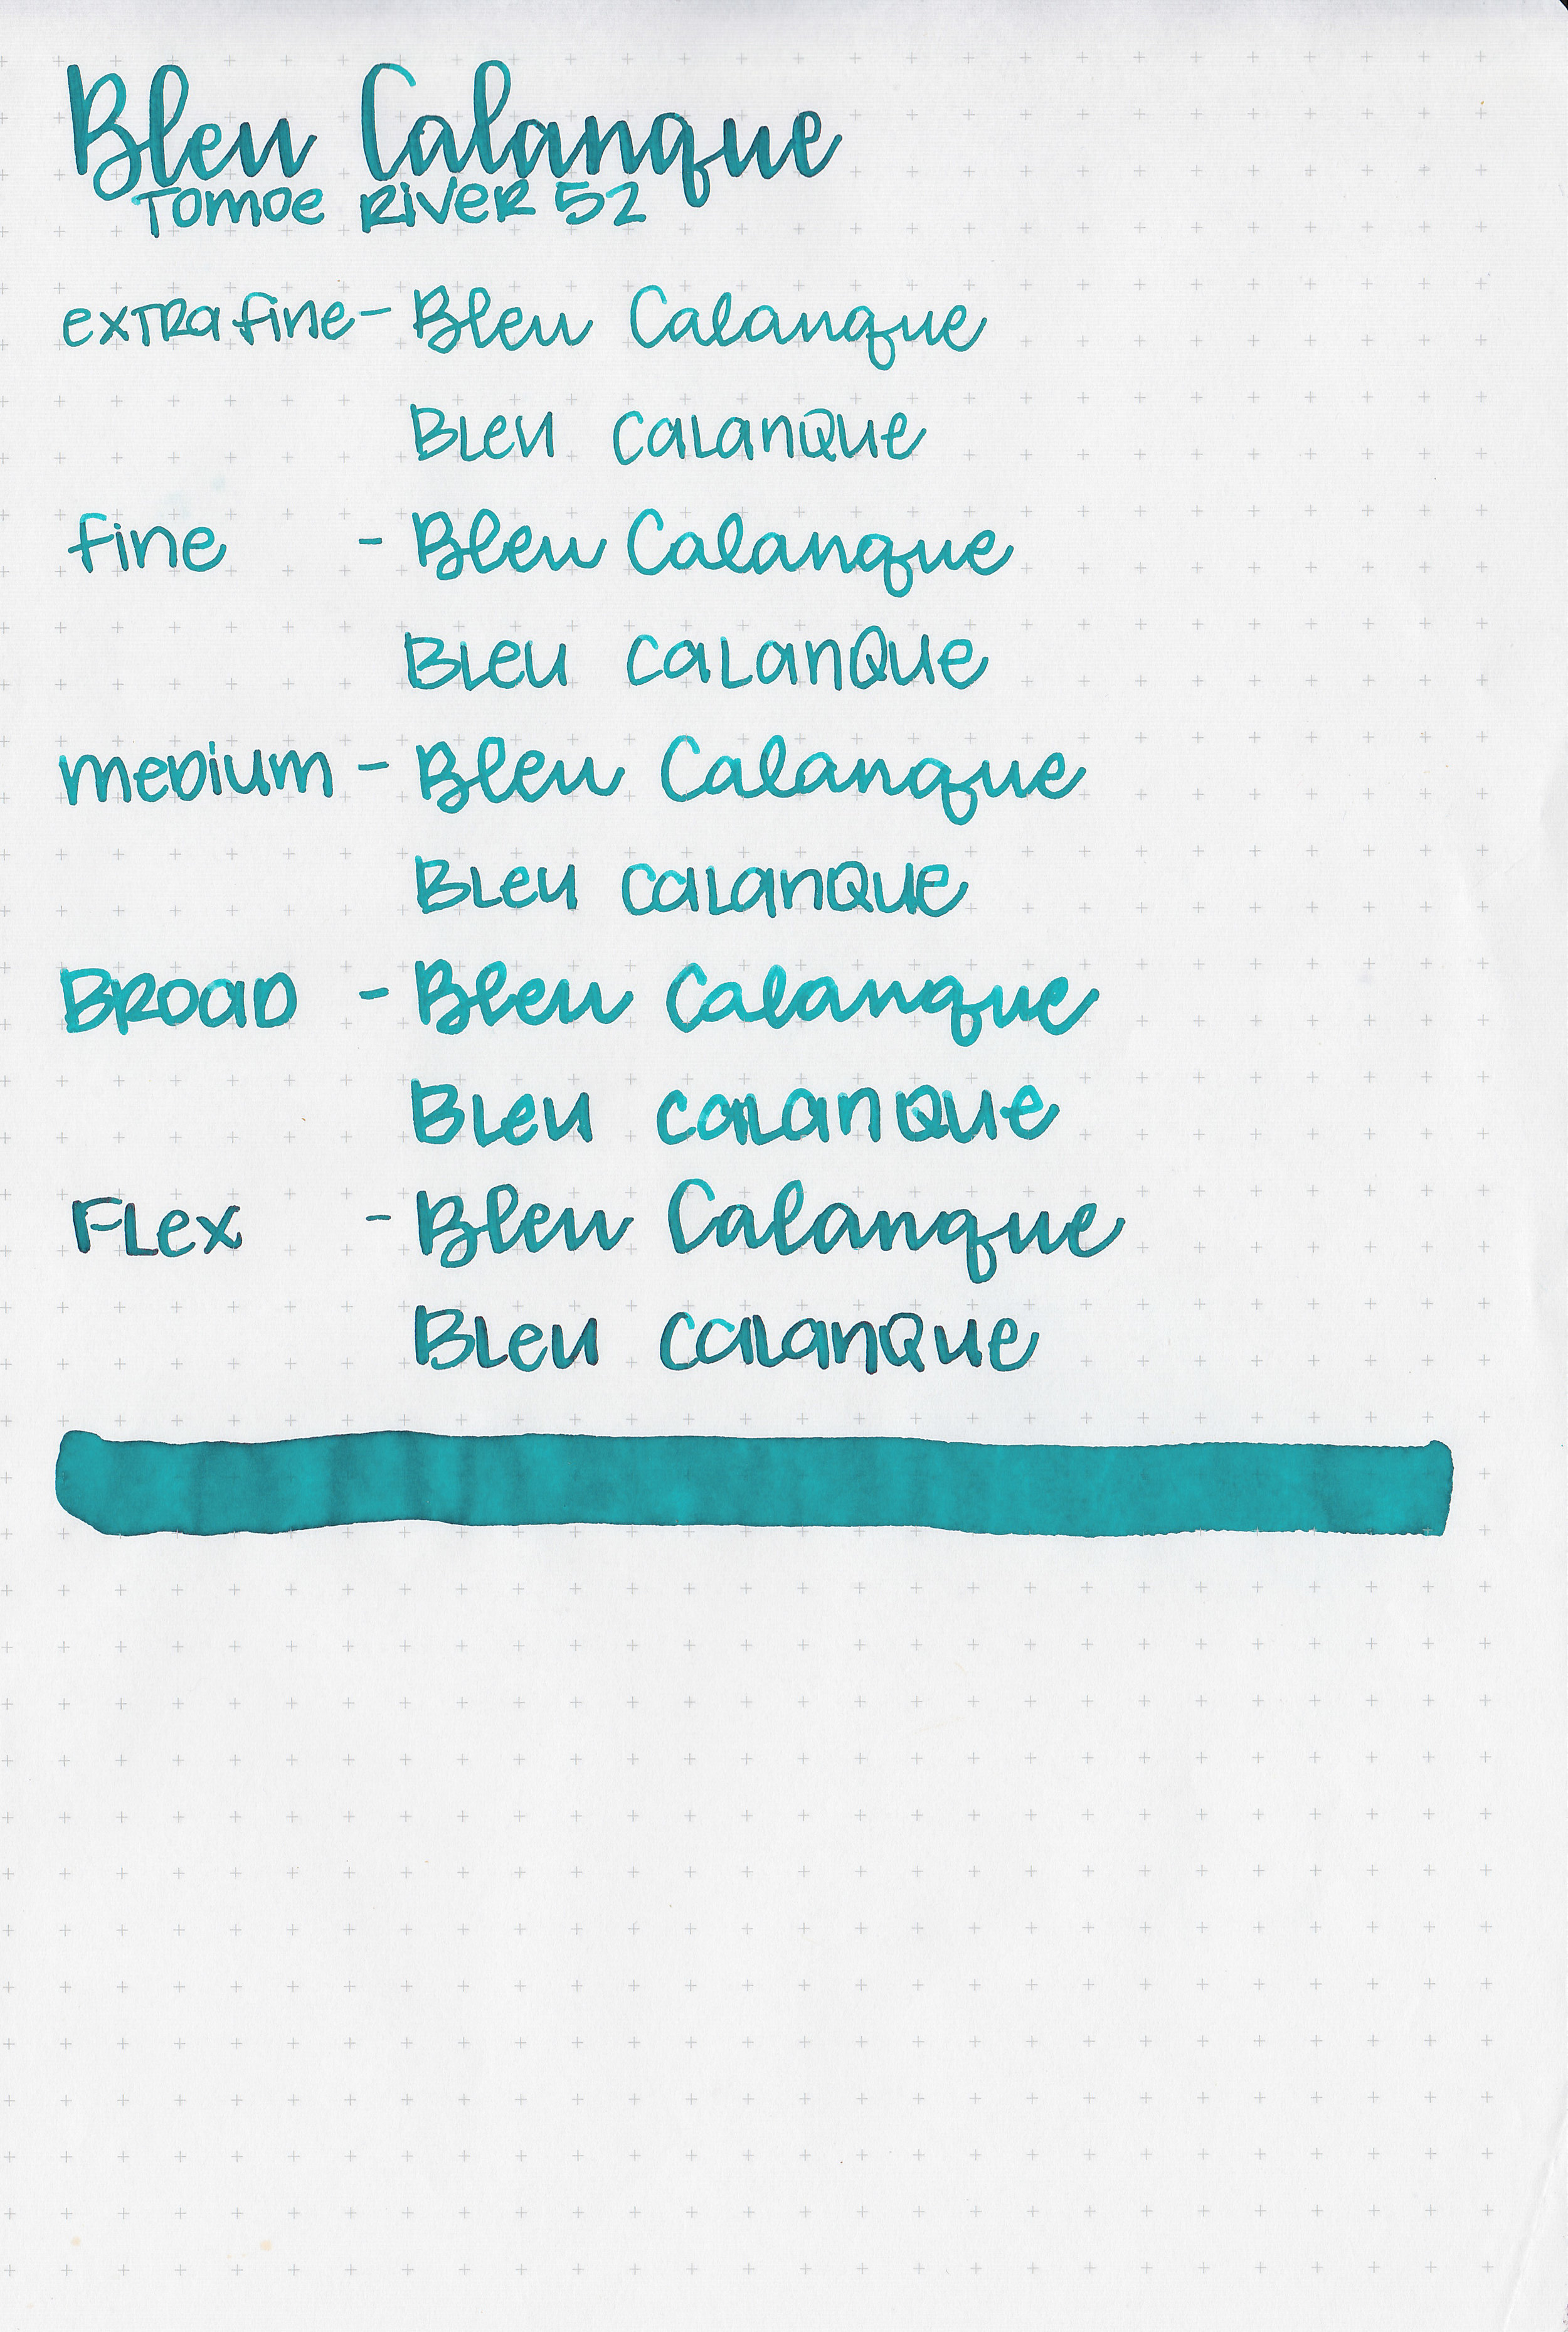 Bleu Calanque
Tomoe River 52
extra fine - Bleu Calanque
Bleu Calanque
fine - Bleu Calanque
Bleu Calanque
medium - Bleu Calanque
Bleu Calanque
Broad - Bleu Calanque
Bleu Calanque
Flex - Bleu Calanque
Bleu Calanque